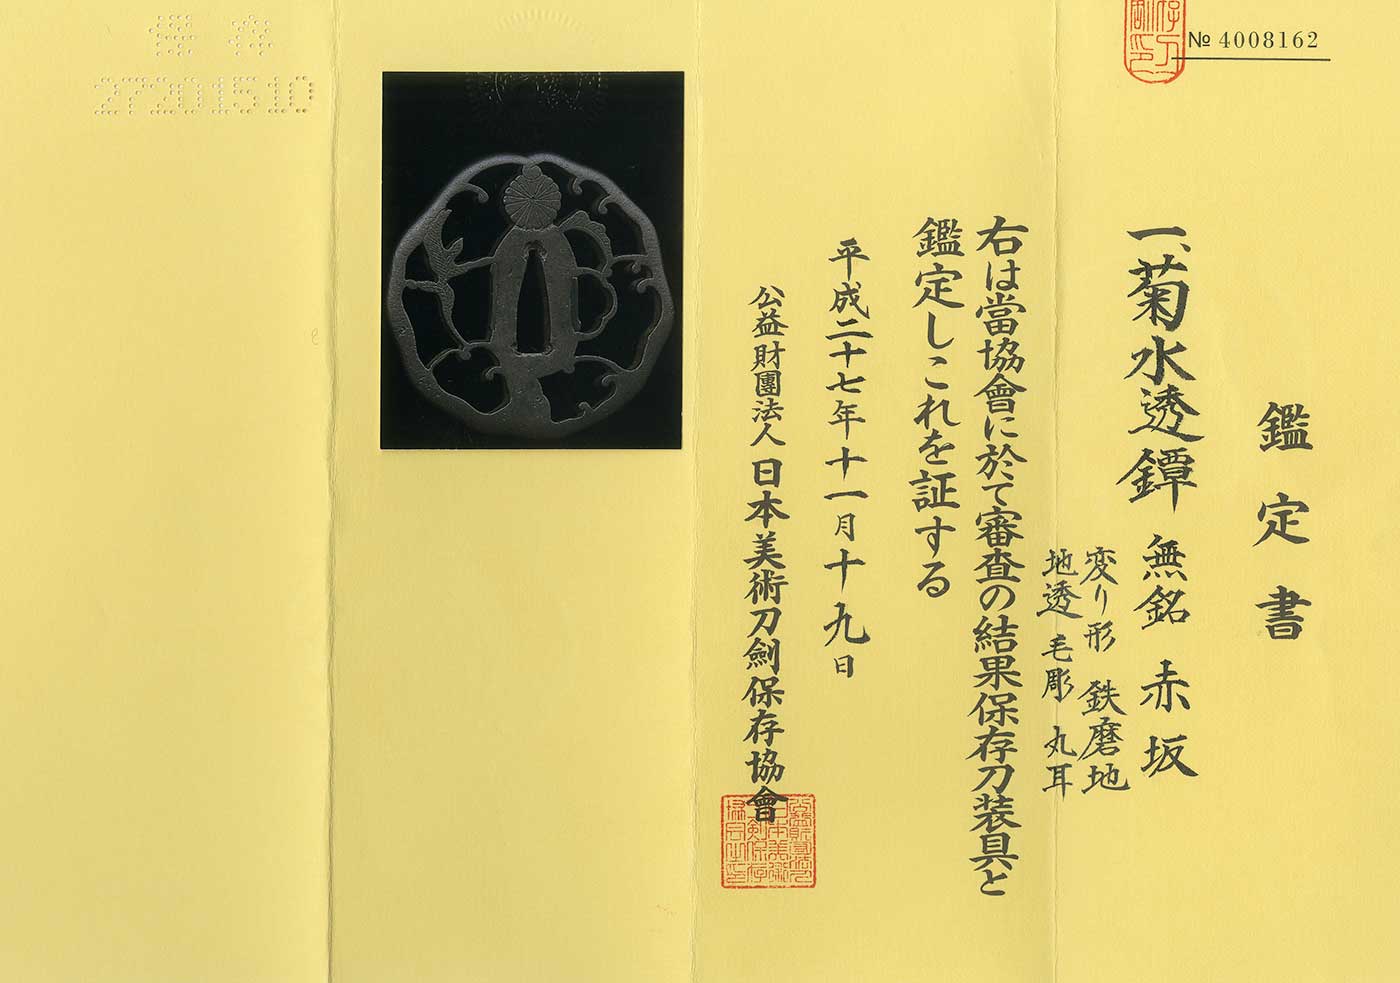 № 4008162
鑑定書
一、菊水透鐔 無銘 赤坂
変り形 鉄磨地
地透 毛彫 丸耳
右は當協會に於て審査の結果保存刀装具と
鑑定しこれを証する
平成二十七年十一月十九日
公益財團法人 日本美術刀劍保存協會
保存
27201510